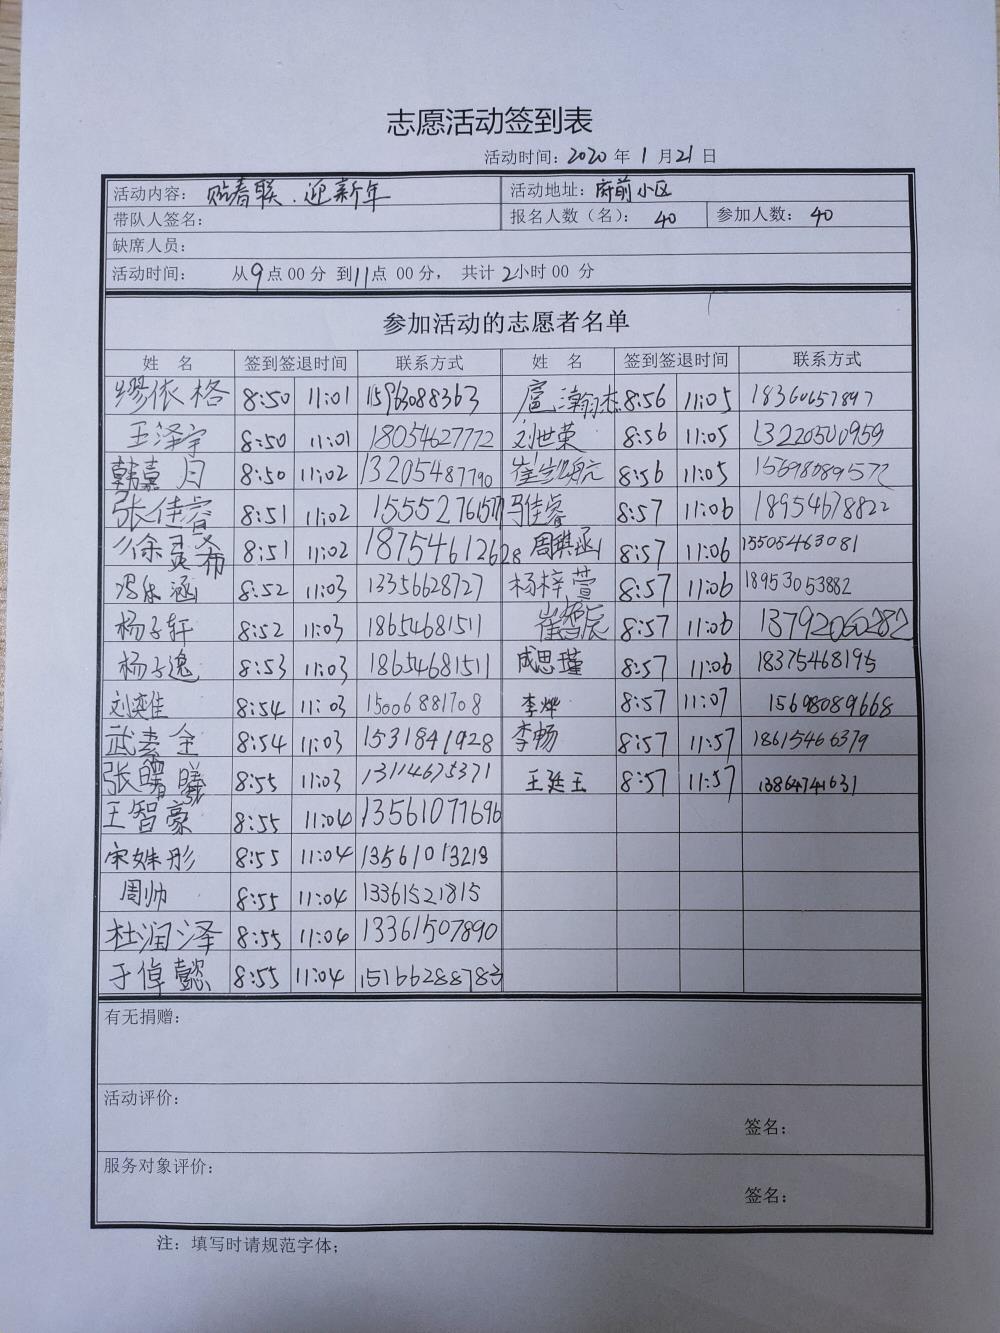 志愿活动签到表
活动时间：2020 年 1 月 21 日
活动内容：贴春联、迎新年 活动地址：府前小区
带队人签名： 报名人数（名）： 40 参加人数： 40
缺席人员：
活动时间： 从9点 00 分 到11点 00 分， 共计 2小时 00 分
参加活动的志愿者名单
姓 名 签到签退时间 联系方式 姓 名 签到签退时间 联系方式
缪依格 8:50 11:01 15963088363 扈瀚杰 8:56 11:05 18360657897
王泽宇 8:50 11:01 18054627772 刘世荣 8:56 11:05 13220500959
韩嘉月 8:50 11:02 13205487790 8:56 11:05 15698089572
张佳睿 8:51 11:02 15552761577 马佳睿 8:57 11:06 18954678822
8:51 11:02 18754612628 周琪函 8:57 11:06 15505463081
冯乐涵 8:52 11:03 13356628727 杨梓萱 8:57 11:06 18953053882
杨子轩 8:52 11:03 18654681511 8:57 11:06 13792060282
杨子逸 8:53 11:03 18654681511 成思瑾 8:57 11:06 18375468195
刘奕佳 8:54 11:03 15006881708 李烨 8:57 11:07 15698089668
武素全 8:54 11:03 1531841928 李畅 8:57 11:57 18615466379
张曦 8:55 11:03 13114675371 王廷玉 8:57 11:57 13864741631
王智豪 8:55 11:04 13561077696
宋姝彤 8:55 11:04 13561013213
周帅 8:55 11:04 13361521815
杜润泽 8:55 11:04 13361507890
于倬懿 8:55 11:04 15166288783
有无捐赠：
活动评价：
签名：
服务对象评价：
签名：
注：填写时请规范字体；